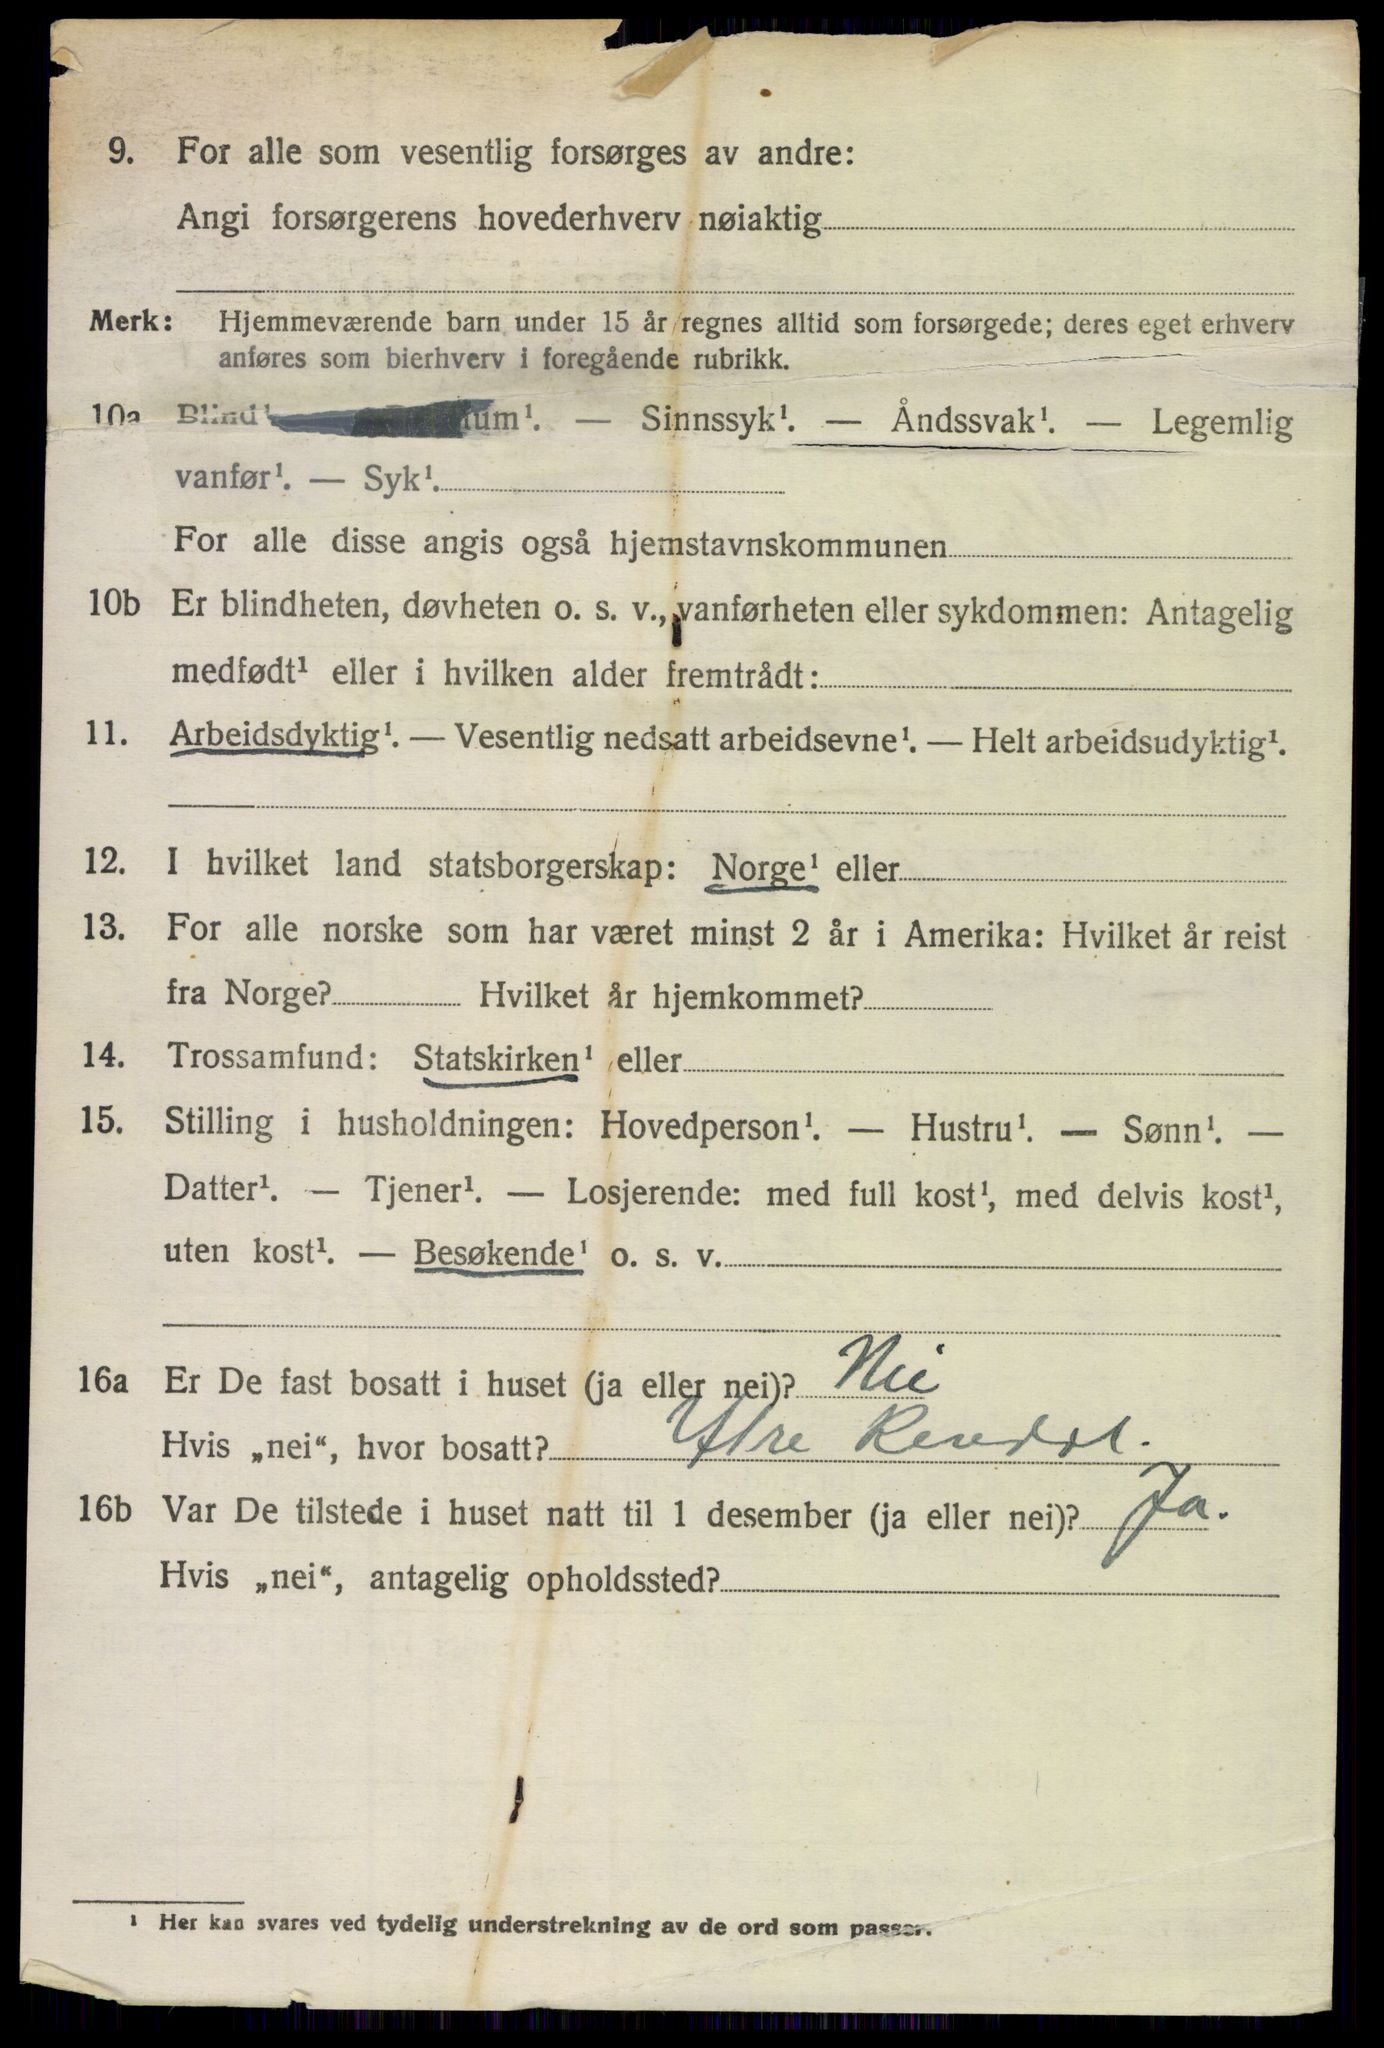 9. For alle som vesentlig forsørges av andre:
Angi forsørgerens hovederhverv nøiaktig
Merk: Hjemmeværende barn under 15 år regnes alltid som forsørgede; deres eget erhverv
anføres som bierhverv i foregående rubrikk.
10a Blind¹ um¹. — Sinnssyk¹. — Åndssvak¹. — Legemlig
vanfør¹. — Syk¹.
For alle disse angis også hjemstavnskommunen
10b Er blindheten, døvheten o. s. v., vanførheten eller sykdommen: Antagelig
medfødt¹ eller i hvilken alder fremtrådt:
11. Arbeidsdyktig¹. — Vesentlig nedsatt arbeidsevne¹. — Helt arbeidsudyktig¹.
12. I hvilket land statsborgerskap: Norge¹ eller
13. For alle norske som har været minst 2 år i Amerika: Hvilket år reist
fra Norge? Hvilket år hjemkommet?
14. Trossamfund: Statskirken¹ eller
15. Stilling i husholdningen: Hovedperson¹. — Hustru¹. — Sønn¹. —
Datter¹. — Tjener¹. — Losjerende: med full kost¹, med delvis kost¹,
uten kost¹. — Besøkende¹ o. s. v.
16a Er De fast bosatt i huset (ja eller nei)? Nei
Hvis „nei“, hvor bosatt? Ytre Rendal.
16b Var De tilstede i huset natt til 1 desember (ja eller nei)? Ja.
Hvis „nei“, antagelig opholdssted?
¹ Her kan svares ved tydelig understrekning av de ord som passer.